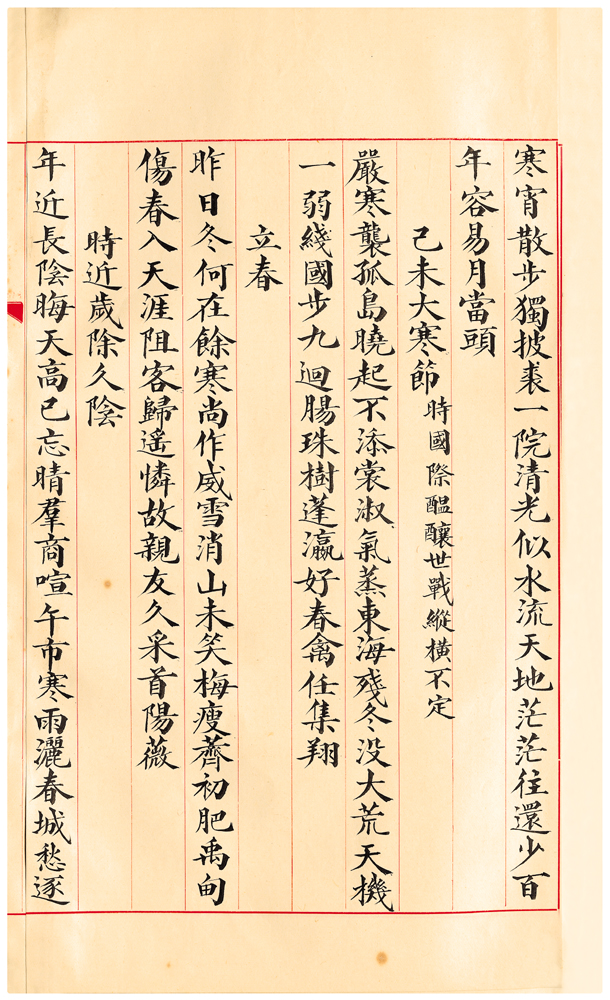 寒宵散步獨披裘一院清光似水流天地茫茫往還少百
年容易月當頭
己未大寒節 時國際醖釀世戰縱橫不定
嚴寒襲孤島曉起不添裳淑氣蒸東海殘冬没大荒天機
一弱綫國步九迴腸珠樹蓬瀛好春禽任集翔
立春
昨日冬何在餘寒尚作威雪消山未笑梅瘦薺初肥禹甸
傷春入天涯阻客歸遥憐故親友久采首陽薇
時近歲除久陰
年近長陰晦天高已忘晴羣商喧午市寒雨灑春城愁逐